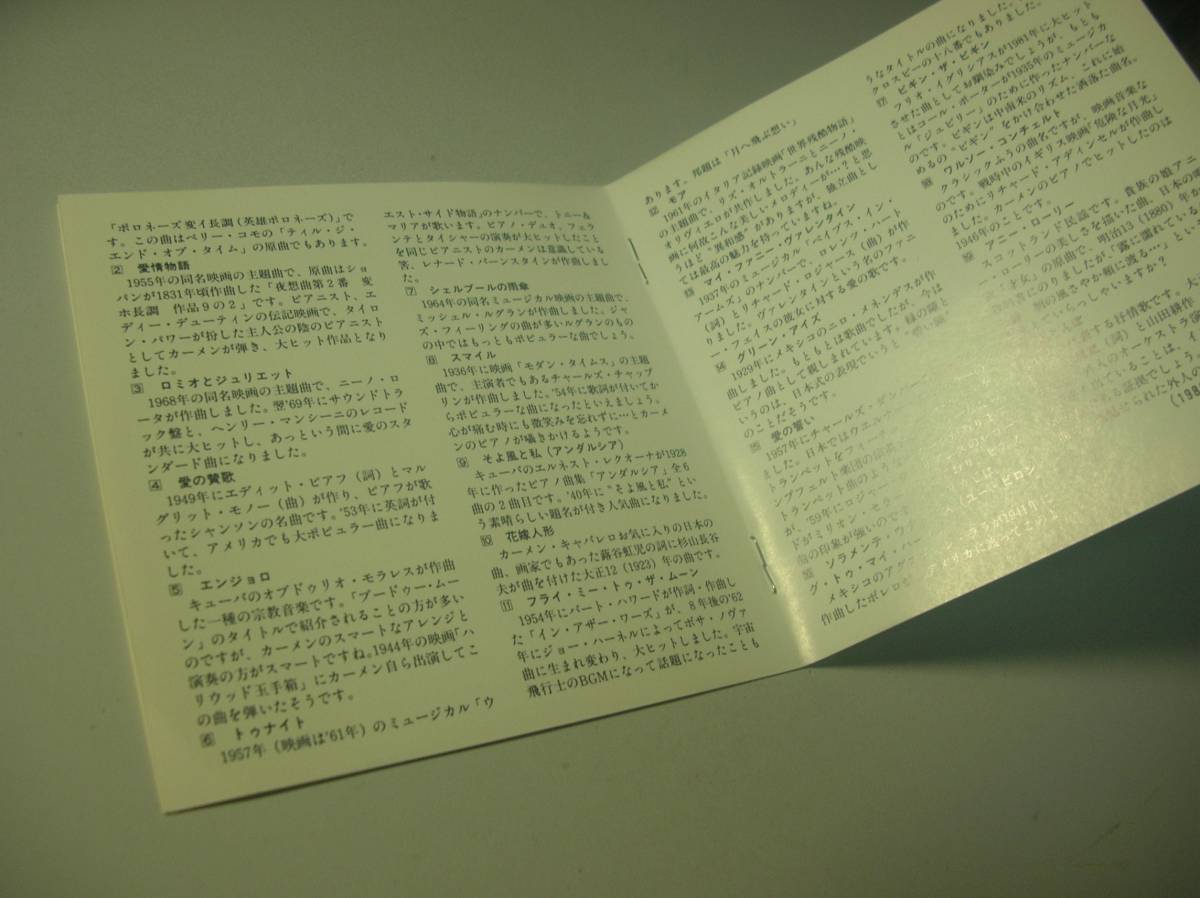 「ポロネーズ変イ長調(英雄ポロネーズ)」で
す。この曲はペリー・コモの「ティル・ジ・
エンド・オブ・タイム」の原曲でもあります。
2 愛情物語
1955年の同名映画の主題曲で、原曲はショ
パンが1831年頃作曲した「夜想曲第2番 変
ホ長調 作品9の2」です。ピアニスト、エ
ディー・デューティンの伝記映画で、タイロ
ン・パワーが扮した主人公の陰のピアニスト
としてカーメンが弾き、大ヒット作品となり
ました。
3 ロミオとジュリエット
1968年の同名映画の主題曲で、ニーノ・ロ
ータが作曲しました。翌'69年にサウンドトラ
ック盤と、ヘンリー・マンシーニのレコード
が共に大ヒットし、あっという間に愛のスタ
ンダード曲になりました。
4 愛の賛歌
1949年にエディット・ピアフ(詞)とマル
グリット・モノー(曲)が作り、ピアフが歌
ったシャンソンの名曲です。'53年に英詞が付
いて、アメリカでも大ポピュラー曲になりま
した。
5 エンジョロ
キューバのオブドゥリオ・モラレスが作曲
した一種の宗教音楽です。「ブードゥー・ムー
ン」のタイトルで紹介されることの方が多い
のですが、カーメンのスマートなアレンジと
演奏の方がスマートですね。1944年の映画「ハ
リウッド玉手箱」にカーメン自ら出演してこ
の曲を弾いたそうです。
6 トゥナイト
1957年(映画は'61年)のミュージカル「ウ
エスト・サイド物語」のナンバーで、トニー&
マリアが歌います。ピアノ・デュオ、フェラ
ンテとタイシャーの演奏が大ヒットしたこと
を同じピアニストのカーメンは意識している
筈、レナード・バーンスタインが作曲しまし
た。
7 シェルブールの雨傘
1964年の同名ミュージカル映画の主題曲で、
ミッシェル・ルグランが作曲しました。ジャ
ズ・フィーリングの曲が多いルグランのもの
の中ではもっともポピュラーな曲でしょう。
8 スマイル
1936年に映画「モダン・タイムス」の主題
曲で、主演者でもあるチャールズ・チャップ
リンが作曲しました。'54年に歌詞が付いてか
らポピュラーな曲になったといえましょう。
心が痛む時にも微笑みを忘れずに…とカーメ
ンのピアノが囁きかけるようです。
9 そよ風と私(アンダルシア)
キューバのエルネスト・レクオーナが1928
年に作ったピアノ曲集「アンダルシア」全6
曲の2曲目です。'40年に"そよ風と私"とい
う素晴らしい題名が付き人気曲になりました。
10 花嫁人形
カーメン・キャバレロお気に入りの日本の
曲、画家でもあった蕗谷虹児の詞に杉山長谷
夫が曲を付けた大正12(1923)年の曲です。
11 フライ・ミー・トゥ・ザ・ムーン
1954年にバート・ハワードが作詞・作曲し
た「イン・アザー・ワーズ」が、8年後の'62
年にジョー・ハーネルによってボサ・ノヴァ
曲に生まれ変わり、大ヒットしました。宇宙
飛行士のBGMになって話題になったことも
あります。邦題は「月へ飛ぶ想い」
12 モア
1961年のイタリア記録映画「世界残酷物語」
の主題曲で、リズ・オルトラーニとニーノ・
オリヴィエロが共作しました。あんな残酷映
画に何故こんな美しいメロディーが…?と思
うほど"異和感"がありますが、独立曲とし
ては最高の魅力を持っていますね。
13 マイ・ファニー・ヴァレンタイン
1937年のミュージカル「ベイブス・イン・
アームズ」のナンバーで、ロレンツ・ハート
(詞)とリチャード・ロジャース(曲)が作
りました。ヴァレンタインという名のファニ
ー・フェイスの彼女に対する愛の歌です。
14 グリーン・アイズ
1929年にメキシコのニロ・メネンデスが作
曲しました。もともとは歌曲でしたが、今は
ピアノ曲として親しまれています。緑の瞳と
いうのは、日本式の表現でいうと、"碧い瞳"
のことだそうです。
15 愛の誓い
1957年にチャールズ・ダン
ました。日本ではウエルナ
トランペットをフ
ンプフェルト楽団の
トランペット曲のように
が、'59年にロジャー
ドがミリオン・セラ
時の印象が強いのです
16 ソラメンテ・ウナ
グ・トゥ・マイ・ハー
メキシコのアグ
作曲したボレロ
うなタイトルの曲になりました。
クロスビーの十八番でもありました。
17 ビギン・ザ・ビギン
フリオ・イグリシアスが1981年に大ヒット
させた曲としてお馴染みでしょうが、もとも
とはコール・ポーターが1935年のミュージカ
ル「ジュビリー」のために作ったナンバーな
のです。ビギンは中南米のリズム、これに始
めるの"ビギン"をかけ合わせた洒落た曲名。
18 ワルソー・コンチェルト
クラシックふうの曲名ですが、映画音楽な
のです。戦時中のイギリス映画「危険な月光」
のためにリチャード・アディンセルが作曲し
ました。カーメンのピアノでヒットしたのは
1946年のことです。
アニー・ローリー
スコットランド民謡です。貴族の娘アニ
・ローリーの美しさを描いた曲、日本の唱
「才女」の原曲で、明治13(1880)年か